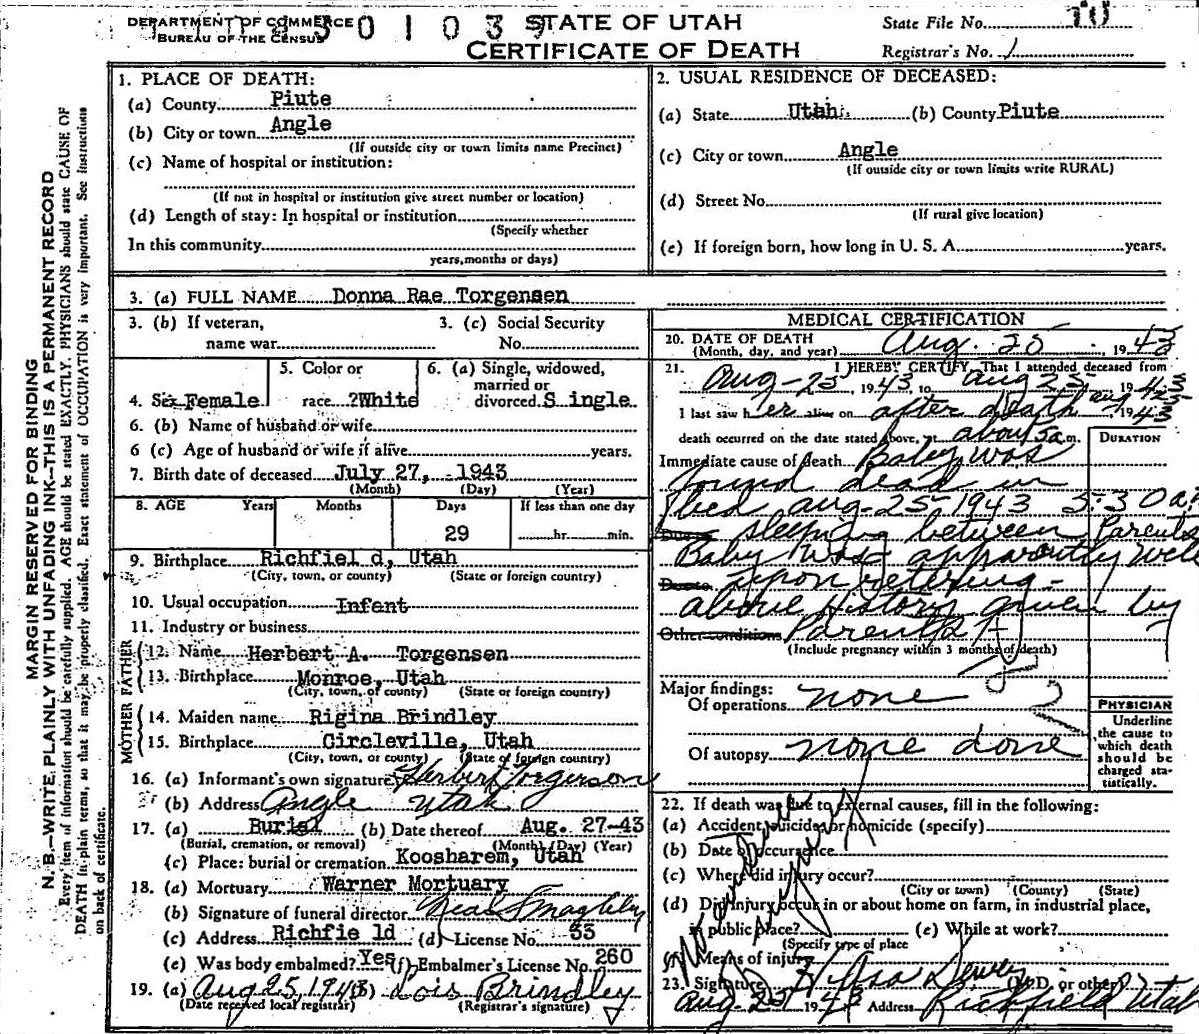 DEPARTMENT OF COMMERCE
BUREAU OF THE CENSUS
STATE OF UTAH
CERTIFICATE OF DEATH
State File No. 10
Registrar's No. 1
MARGIN RESERVED FOR BINDING
N. B.—WRITE PLAINLY WITH UNFADING INK—THIS IS A PERMANENT RECORD
Every item of information should be carefully supplied. AGE should be stated EXACTLY. PHYSICIANS should state CAUSE OF
DEATH in plain terms, so that it may be properly classified. Exact statement of OCCUPATION is very important. See instructions
on back of certificate.
1. PLACE OF DEATH:
(a) County Piute
(b) City or town Angle
(If outside city or town limits name Precinct)
(c) Name of hospital or institution:
(If not in hospital or institution give street number or location)
(d) Length of stay: In hospital or institution
(Specify whether
In this community
years, months or days)
2. USUAL RESIDENCE OF DECEASED:
(a) State Utah (b) County Piute
(c) City or town Angle
(If outside city or town limits write RURAL)
(d) Street No.
(If rural give location)
(e) If foreign born, how long in U. S. A. years.
3. (a) FULL NAME Donna Rae Torgensen
3. (b) If veteran,
name war
3. (c) Social Security
No.
4. Sex Female
5. Color or
race ?White
6. (a) Single, widowed,
married or
divorced S ingle
6. (b) Name of husband or wife
6 (c) Age of husband or wife if alive years.
7. Birth date of deceased July 27, -1943
(Month) (Day) (Year)
8. AGE Years Months Days If less than one day
29 hr. min.
9. Birthplace Richfiel d, Utah
(City, town, or county) (State or foreign country)
10. Usual occupation Infant
11. Industry or business
FATHER
12. Name Herbert A. Torgensen
13. Birthplace Monroe, Utah
(City, town, or county) (State or foreign country)
MOTHER
14. Maiden name Rigina Brindley
15. Birthplace Circleville, Utah
(City, town, or county) (State of foreign country)
16. (a) Informant's own signature Herbert Torgerson
(b) Address Angle Utah
17. (a) Burial (b) Date thereof Aug. 27-43
(Burial, cremation, or removal) (Month) (Day) (Year)
(c) Place: burial or cremation Koosharem, Utah
18. (a) Mortuary Warner Mortuary
(b) Signature of funeral director
(c) Address Richfie ld (d) License No. 33
(e) Was body embalmed? Yes (f) Embalmer's License No. 260
19. (a) Aug 25, 1943 (b) Lois Brindley
(Date received local registrar) (Registrar's signature)
MEDICAL CERTIFICATION
20. DATE OF DEATH
(Month, day, and year) Aug. 25 1943
21. I HEREBY CERTIFY, That I attended deceased from
Aug-25, 1943 to Aug 25, 1943
I last saw her alive on after death Aug 25 1943
death occurred on the date stated above, at about 5 a m.
DURATION
Immediate cause of death Baby was
found dead in
bed Aug-25-1943 5:30 a.m
Due to sleeping between Parents
Baby was apparently well
Due to upon retiring-
above History given by
Other conditions Parents
(Include pregnancy within 3 months of death)
Major findings:
Of operations none
Of autopsy none done
PHYSICIAN
Underline
the cause to
which death
should be
charged sta-
tistically.
22. If death was due to external causes, fill in the following:
(a) Accident, suicide or homicide (specify)
(b) Date of occurance
(c) Where did injury occur?
(City or town) (County) (State)
(d) Did injury occur in or about home on farm, in industrial place,
in public place? (e) While at work?
(Specify type of place
(f) Means of injury
23. Signature Dewey (M.D. or other)
Aug. 25 1943 Address Richfield Utah